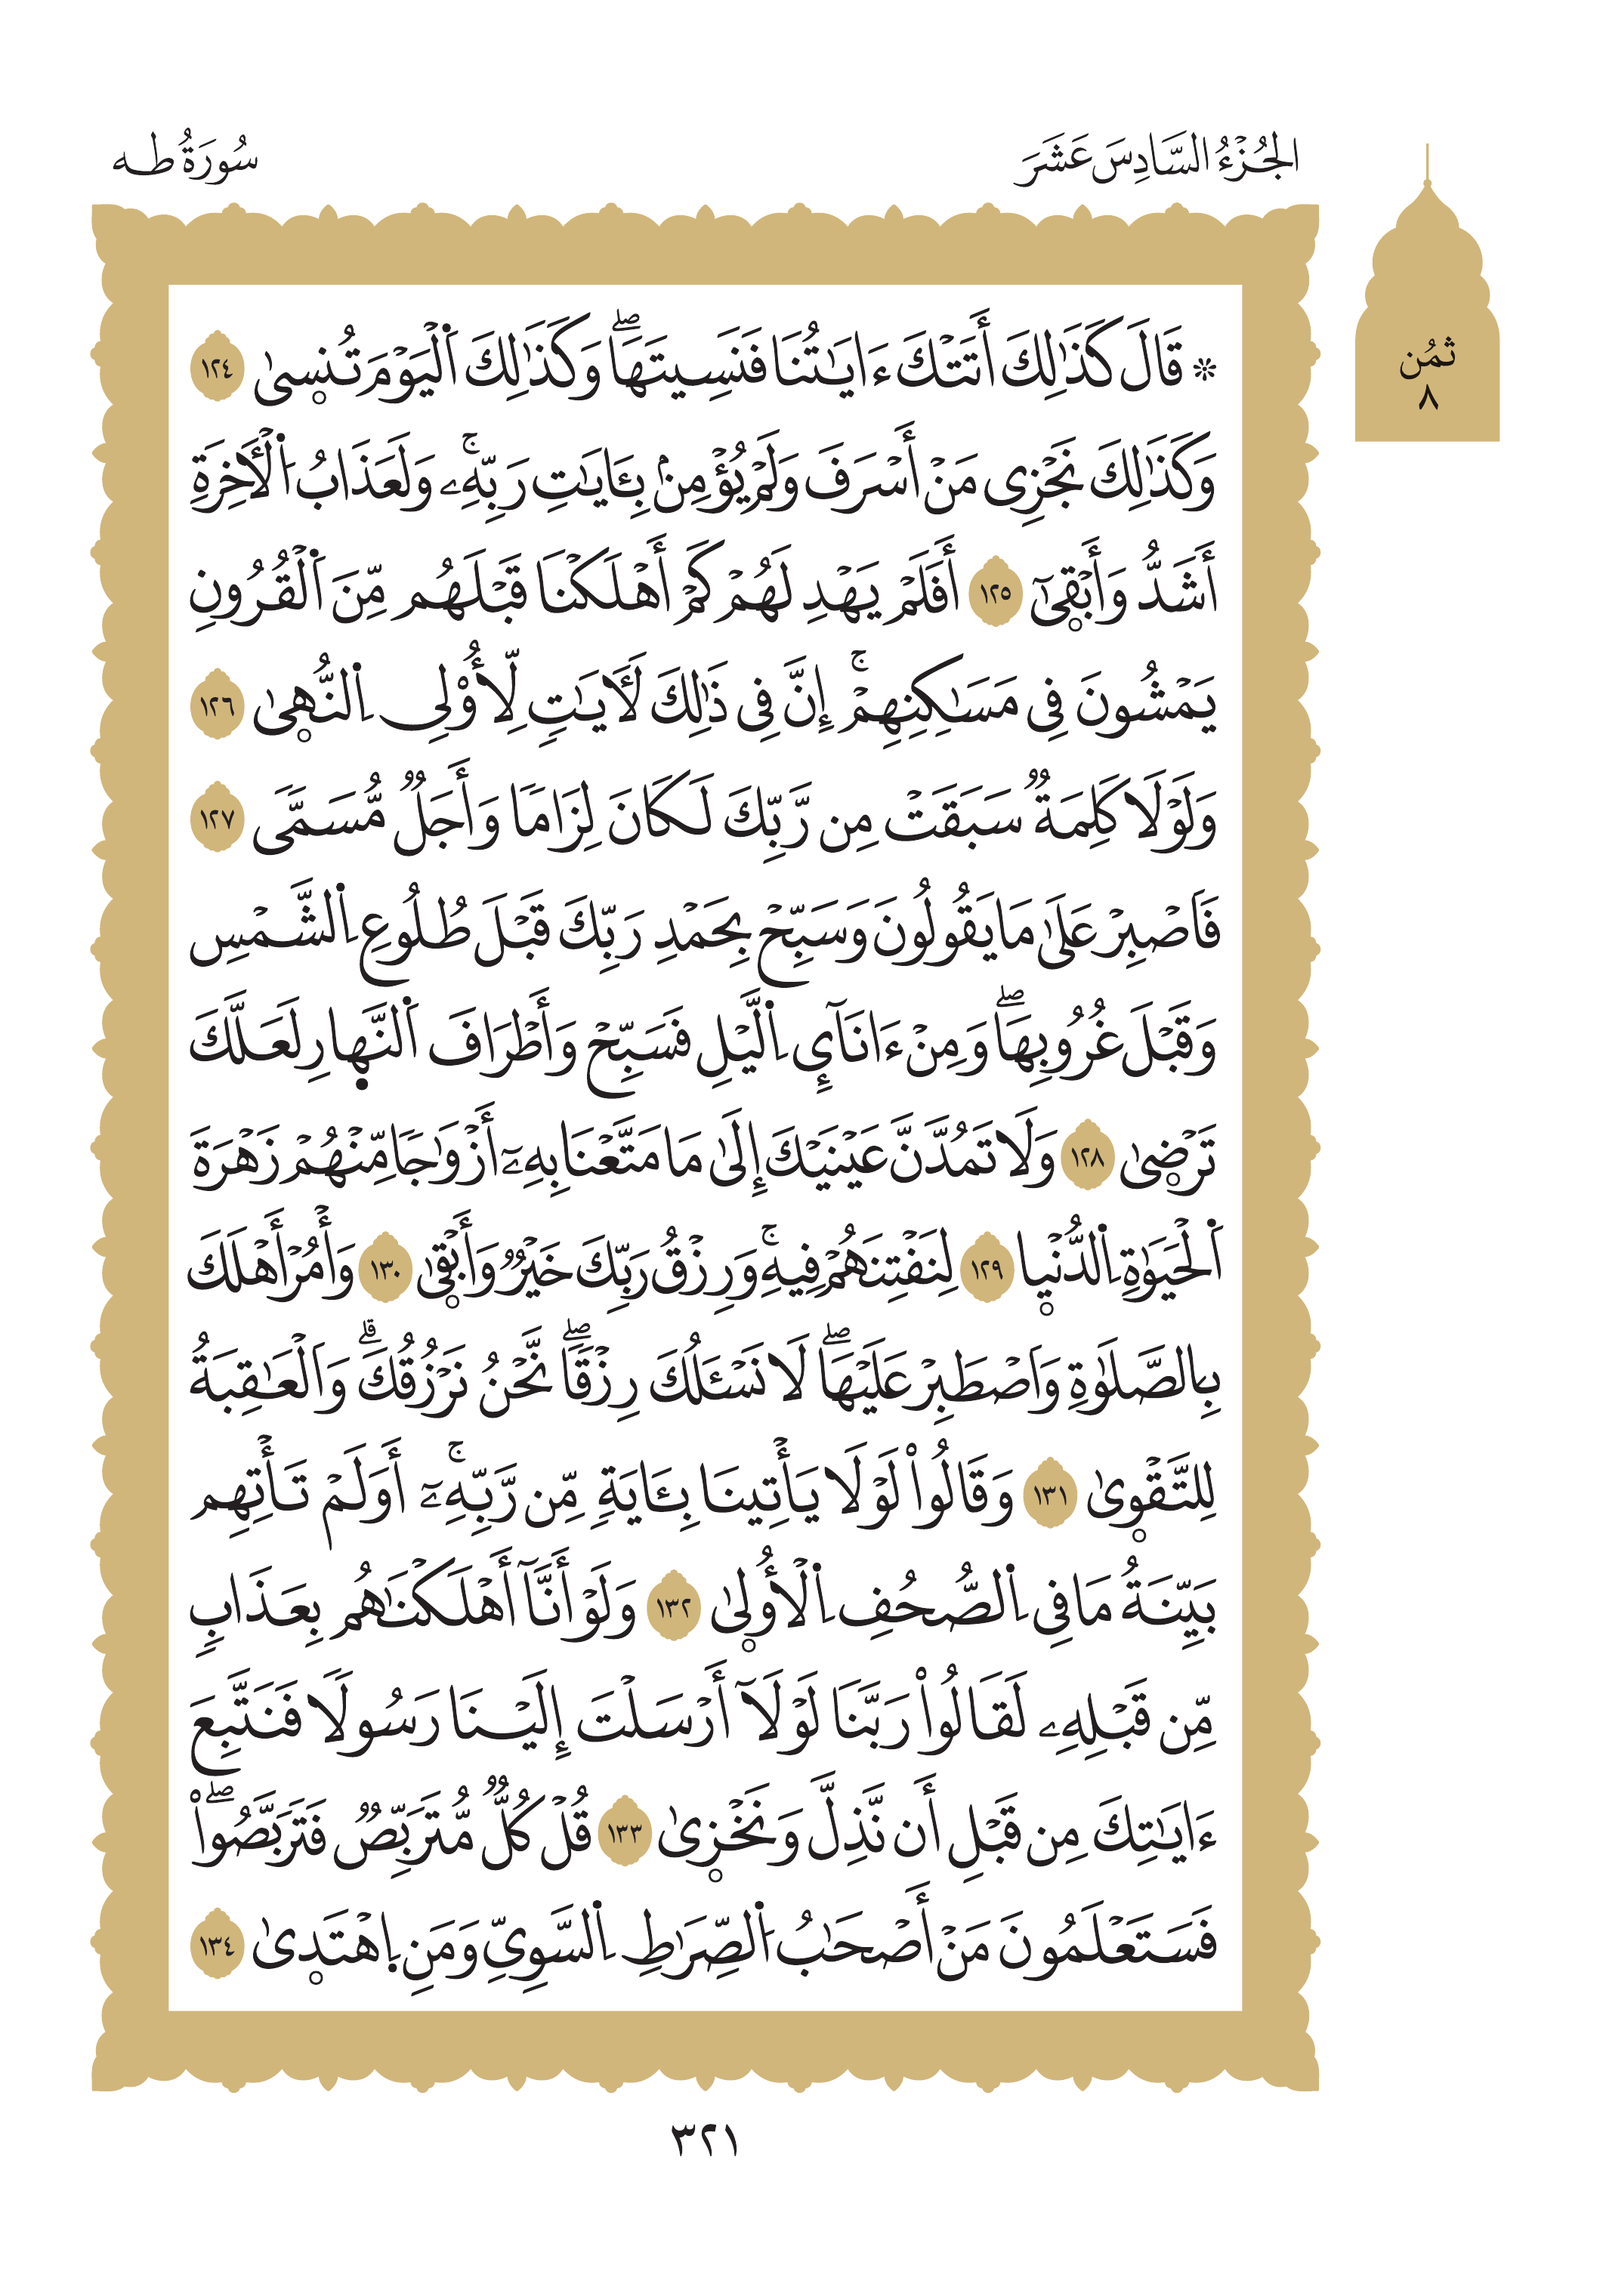 الجُزْءُ السَّادِسَ عَشَرَ
سُورَةُ طه
ثمُن
٨
۞ قَالَ كَذَٰلِكَ أَتَتْكَ ءَايَٰتُنَا فَنَسِيتَهَاۖ وَكَذَٰلِكَ اَ۬لْيَوْمَ تُنس۪ىٰ ١٢٤
وَكَذَٰلِكَ نَجْزِے مَنْ أَسْرَفَ وَلَمْ يُؤْمِنۢ بِـَٔايَٰتِ رَبِّهِۦۚ وَلَعَذَابُ اُ۬لْأَخِرَةِ
أَشَدُّ وَأَبْق۪ىٰٓ ١٢٥ أَفَلَمْ يَهْدِ لَهُمْ كَمْ أَهْلَكْنَا قَبْلَهُم مِّنَ اَ۬لْقُرُونِ
يَمْشُونَ فِے مَسَٰكِنِهِمْۚ إِنَّ فِے ذَٰلِكَ لَأٓيَٰتٖ لِّأُوْلِے اِ۬لنُّه۪ىٰ ١٢٦
وَلَوْلَا كَلِمَةٞ سَبَقَتْ مِن رَّبِّكَ لَكَانَ لِزَاماٗ وَأَجَلٞ مُّسَمّيٗ ١٢٧
فَاَصْبِرْ عَلَىٰ مَا يَقُولُونَ وَسَبِّحْ بِحَمْدِ رَبِّكَ قَبْلَ طُلُوعِ اِ۬لشَّمْسِ
وَقَبْلَ غُرُوبِهَاۖ وَمِنْ ءَانَآءِےْ اِ۬ليْلِ فَسَبِّحْ وَأَطْرَافَ اَ۬لنَّه۪ارِ لَعَلَّكَ
تَرْض۪ىٰ ١٢٨ وَلَا تَمُدَّنَّ عَيْنَيْكَ إِلَىٰ مَا مَتَّعْنَا بِهِۦٓ أَزْوَٰجاٗ مِّنْهُمْ زَهْرَةَ
اَ۬لْحَيَوٰةِ اِ۬لدُّنْي۪ا ١٢٩ لِنَفْتِنَهُمْ فِيهِۚ وَرِزْقُ رَبِّكَ خَيْرٞ وَأَبْق۪ىٰ ١٣٠ وَأْمُرْ أَهْلَكَ
بِالصَّلَوٰةِ وَاَصْطَبِرْ عَلَيْهَاۖ لَا نَسْـَٔلُكَ رِزْقاٗۖ نَّحْنُ نَرْزُقُكَۗ وَاَلْعَٰقِبَةُ
لِلتَّقْو۪ىٰ ١٣١ وَقَالُواْ لَوْلَا يَأْتِينَا بِـَٔايَةٖ مِّن رَّبِّهِۦٓۚ أَوَلَمْ تَأْتِهِم
بَيِّنَةُ مَا فِے اِ۬لصُّحُفِ اِ۬لْأُول۪ىٰ ١٣٢ وَلَوْ أَنَّآ أَهْلَكْنَٰهُم بِعَذَابٖ
مِّن قَبْلِهِۦ لَقَالُواْ رَبَّنَا لَوْلَآ أَرْسَلْتَ إِلَيْنَا رَسُولاٗ فَنَتَّبِعَ
ءَايَٰتِكَ مِن قَبْلِ أَن نَّذِلَّ وَنَخْز۪ىٰ ١٣٣ قُلْ كُلّٞ مُّتَرَبِّصٞ فَتَرَبَّصُواْۖ
فَسَتَعْلَمُونَ مَنْ أَصْحَٰبُ اُ۬لصِّرَٰطِ اِ۬لسَّوِيِّ وَمَنِ اِ۪هْتَد۪ىٰ ١٣٤
٣٢١